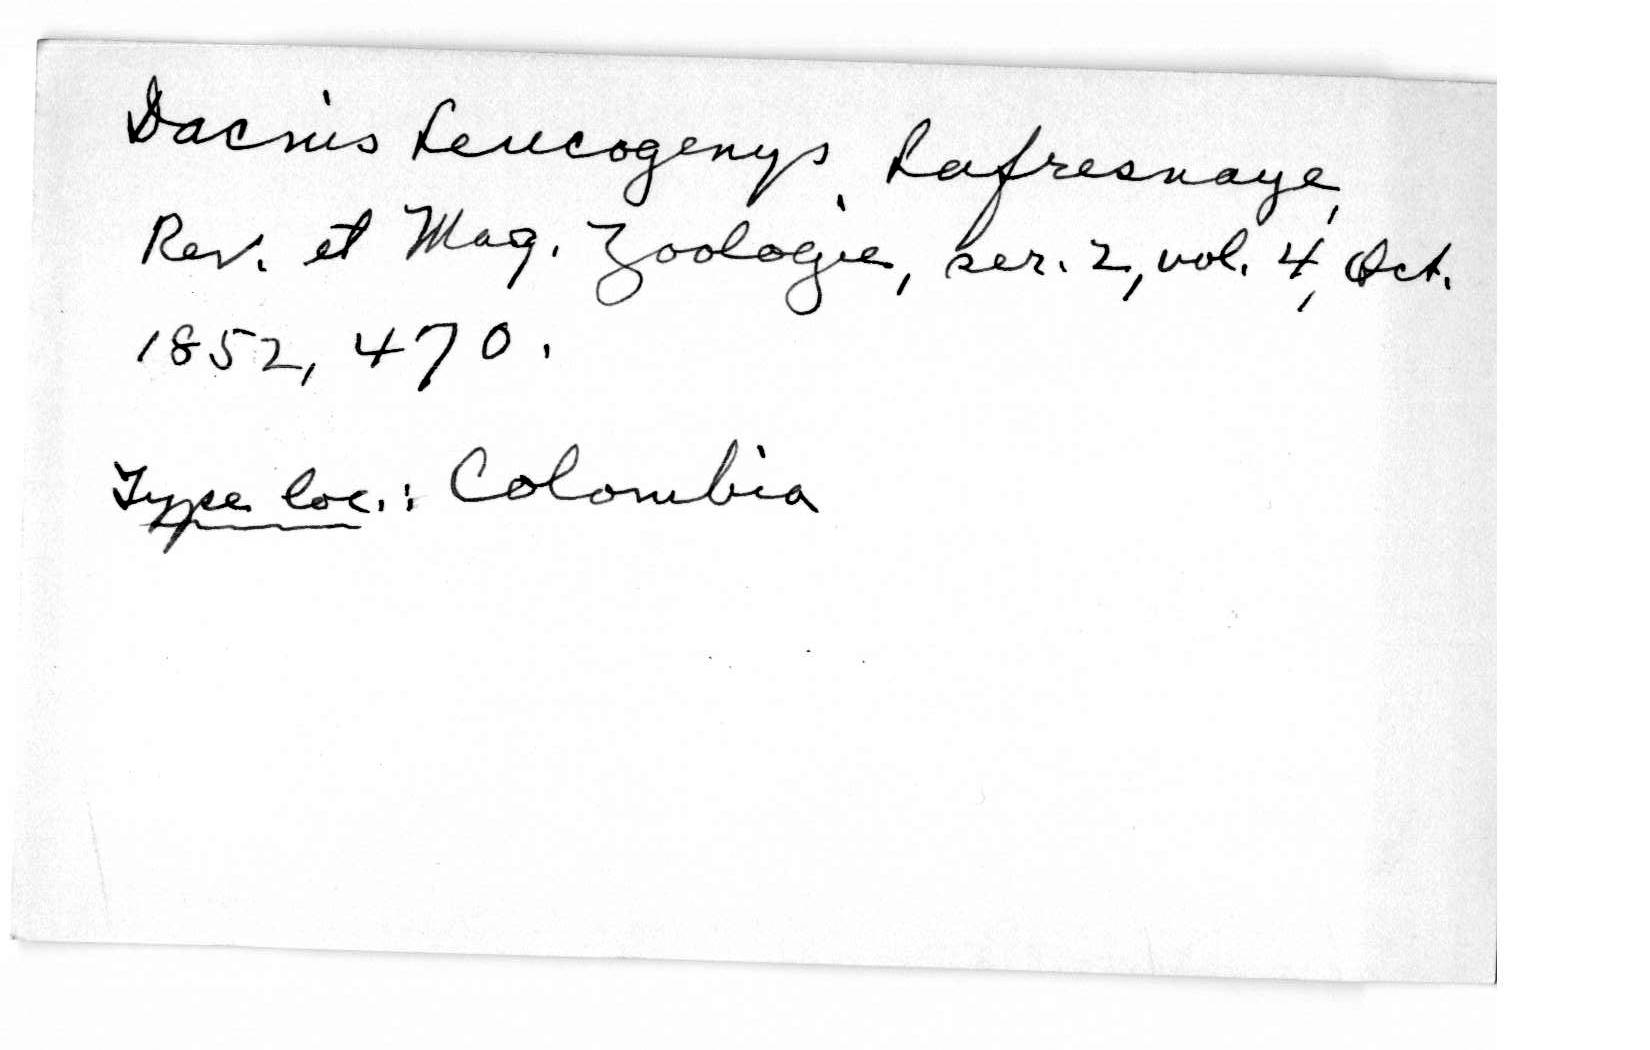 Dacnis leucogenys, Lafresnaye,
Rev. et Mag. Zoologie, ser. 2, vol. 4, Oct.
1852, 470.
Type loc.: Colombia